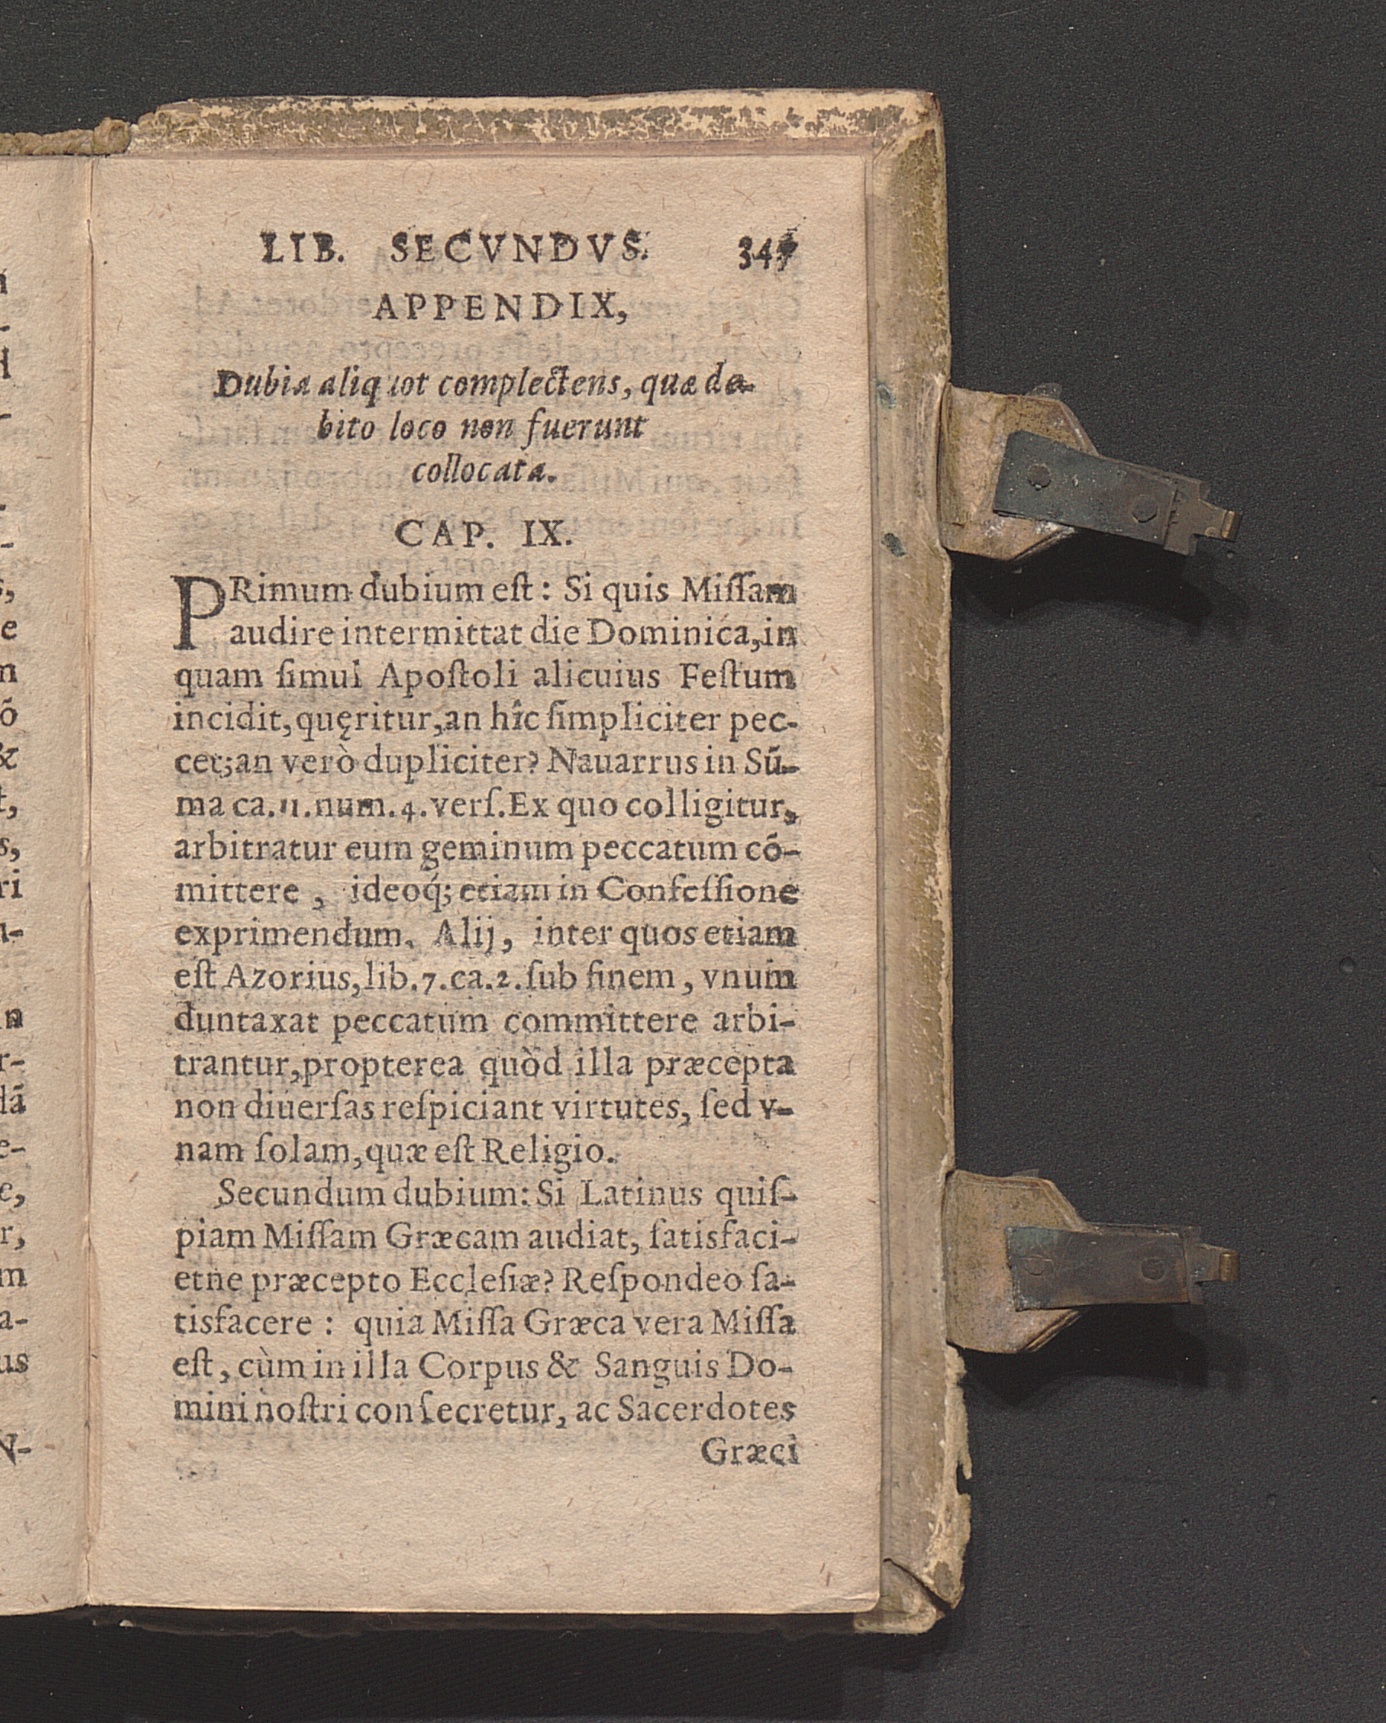 LIB. SECVNDVS. 347
APPENDIX,
Dubia aliquot complectens, quæ de-
bito loco non fuerunt
collocata.
CAP. IX.
PRimum dubium eſt: Si quis Miſſam
audire intermittat die Dominica, in
quam ſimul Apoſtoli alicuius Feſtum
incidit, quęritur, an hîc ſimpliciter pec-
cet; an verò dupliciter? Nauarrus in Sū-
ma ca. 11. num. 4. verſ. Ex quo colligitur,
arbitratur eum geminum peccatum cō-
mittere, ideoq́; etiam in Confeſſione
exprimendum. Alij, inter quos etiam
eſt Azorius, lib. 7. ca. 2. ſub finem, vnum
duntaxat peccatum committere arbi-
trantur, propterea quòd illa præcepta
non diuerſas reſpiciant virtutes, ſed v-
nam ſolam, quæ eſt Religio.
Secundum dubium: Si Latinus quiſ-
piam Miſſam Græcam audiat, ſatisfaci-
etne præcepto Eccleſiæ? Reſpondeo ſa-
tisfacere: quia Miſſa Græca vera Miſſa
eſt, cùm in illa Corpus & Sanguis Do-
mini noſtri conſecretur, ac Sacerdotes
Græci